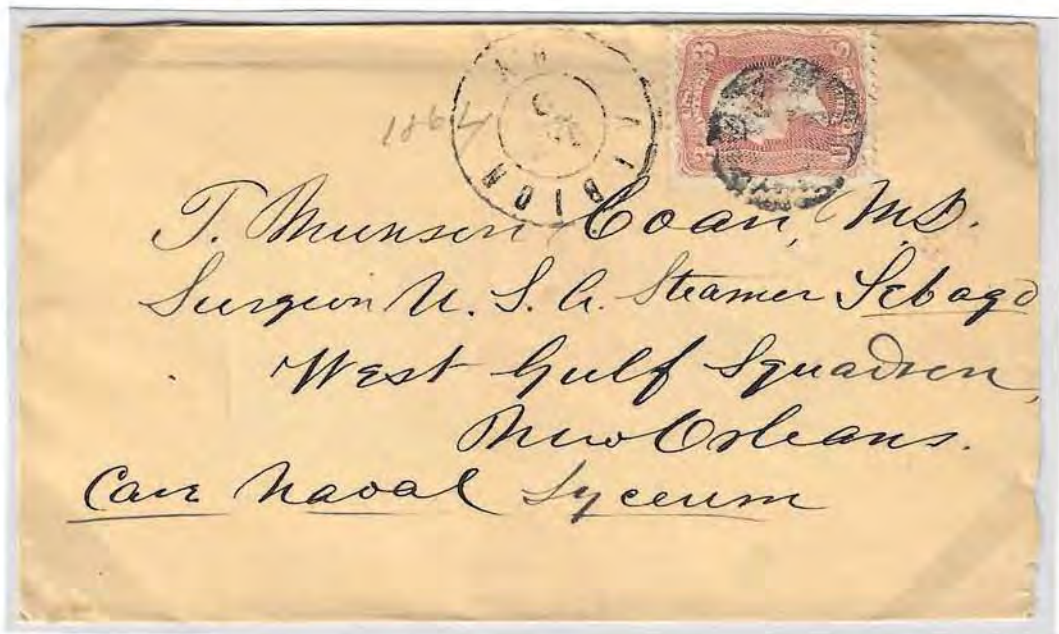 1864
T. Munson Coan, M.D.
Surgeon U. S. A. Steamer Sebago
West Gulf Squadron,
New Orleans.
Care Naval Lyceum